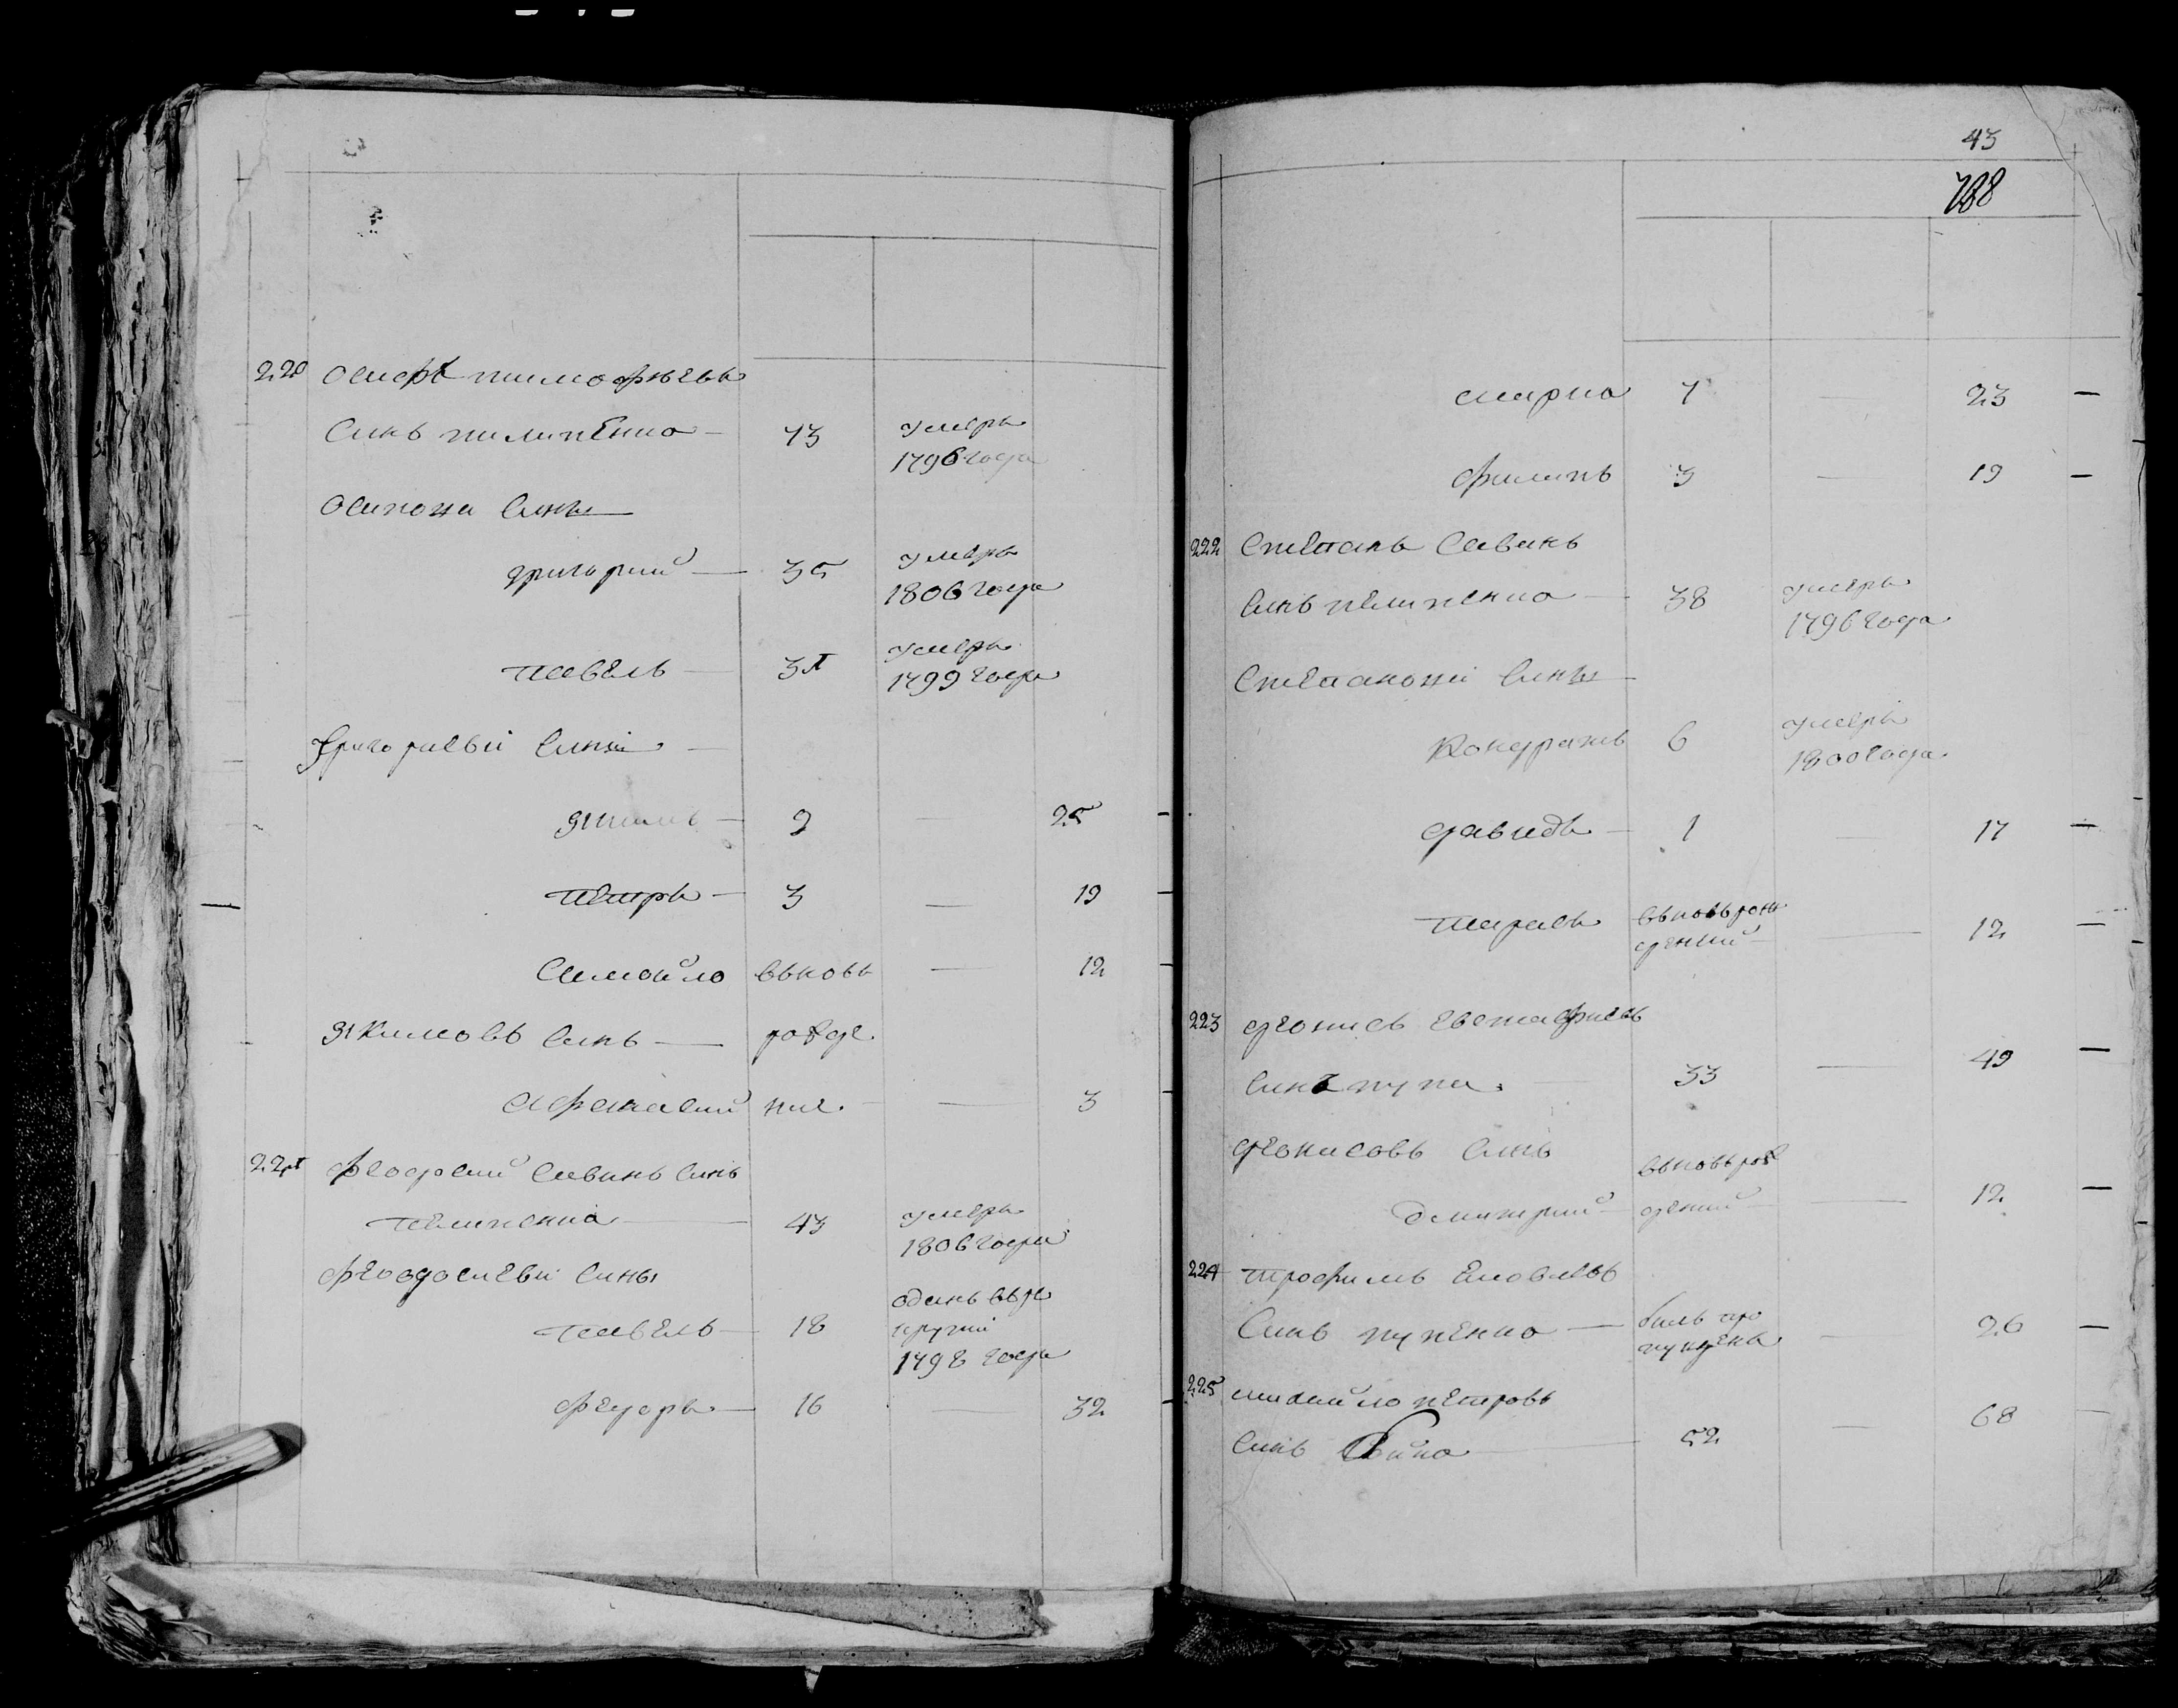 220 Осифъ тимофѣевъ
Синъ пилипенко 73 умеръ
1796 года
Осипови Сини
григорий 35 умеръ
1806 года
павелъ 31 умеръ
1799 года
Григориеви Сини
Якимъ 9 — 25
петръ 3 — 19
Самойло вновь — 12
Якимовъ Синъ рожде
Афанасий ние — 3
221 феодосий Савинъ Синъ
пелипенко 43 умеръ
1806 года
феодосиеви Сины
павелъ 18 оданъ въ ре
крути
1798 года
федоръ 16 — 32
43
788
марко 7 — 23
филипъ 3 — 19
222 Степанъ Савинъ
Синъ пелипенко 38 умеръ
1796 года
Степанови Сини
Кондратъ 6 умеръ
1800 года
давидъ 1 — 17
тарасъ вновь рож
дений — 12
223 денисъ евстафиевъ
Синъ пупа 33 — 49
денисовъ Синъ
вновь рож
Дмитрий дений — 12
224 трофимъ Яковлевъ
Синъ пупенко билъ про
пущенъ — 26
225 михайло петровъ
Синъ 52 — 68